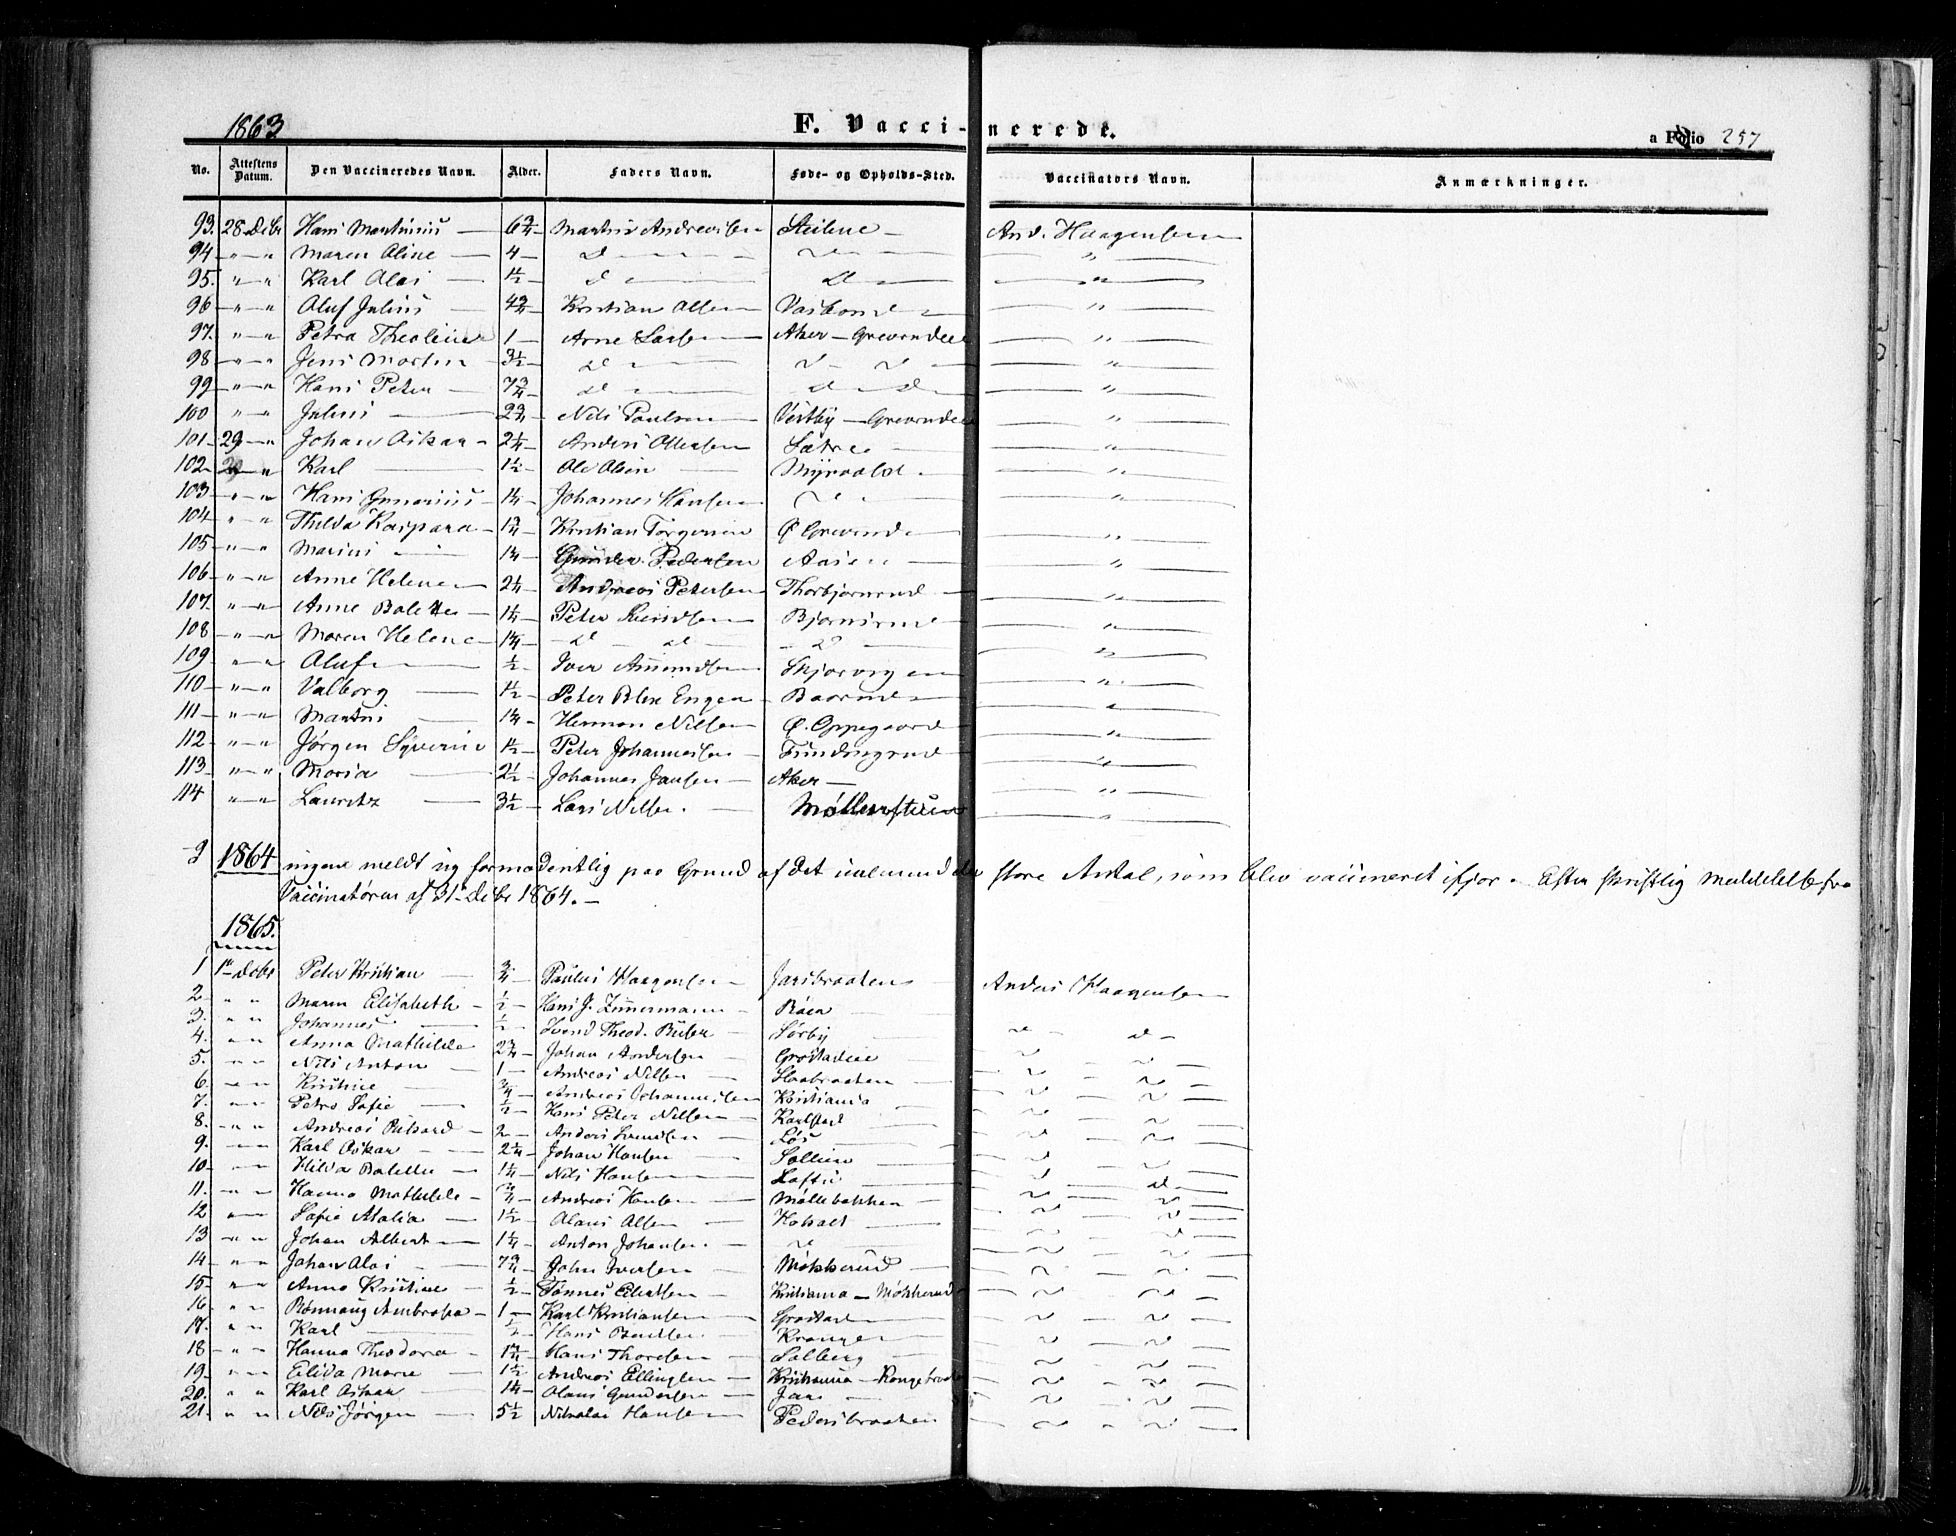 1863
F. Vacci-nerede.
a Folio 257
No. Attestens Datum. Den Vaccineredes Navn. Alder. Faders Navn. Føde- og Opholds-Sted. Vaccinators Navn. Anmærkninger.
93. 28 Debr Hans Martinius — 6 3/4 — Martin Andreasen Steilene — And. Haagensen
94 — " — " Maren Oline — 4 — d — — — " —
95. — " — " Karl Olai — 1 1/2 — d — d — — " —
96 — " — " Oluf Julius — 4 3/4 — Kristian Olsen — " —
97. — " — " Petra Theoline 1 — Arne Larsen — Aker — Grevrudeie — " —
98 — " — " Jens Martin 3 1/2 — d — — " —
99 — " — " Hans Peter — 7 3/4 — d — d — d — — " —
100 " — " Julius — 2 3/4 — Nils Paulsen — Vestby — Grevrudeie — " —
101 — 29 — " Johan Oskar — 2 1/4 — Anders Ottersen Sætre — — " —
102 — " Karl — 1 1/2 — Ole Olsen — Myrvold — — " —
103 — " — " Hans Gunerius — 1 1/4 — Johannes Hansen — " —
104 — " — " Thilda Kaspara — 1 3/4 — Kristian Torgersen Ø Grevrud — — " —
105 — " — " Marius — 1 1/4 — Gunder Pedersen Aasen — — " —
106 — " — " Anne Helene — 2 1/4 — Andreas Petersen Thorbjørnrud — — " —
107. — " — " Anne Bolette — 1 1/4 — Peter Svendsen Bjørnsrud — — " —
108 — " — " Maren Helene — 1/4 — d — d — — d — — " —
109 — " — " Oluf — 1/2 — Iver Amundsen Skjærvigen — — " —
110 — " — " Valborg — 1 1/2 — Peter Engen — Baarud — — " —
111 — " — " Martin — 1 1/4 — Herman Nilsen — Ø. Oppegaard — " —
112 — " — " Jørgen Syverin 1 1/2 — Peter Johannesen — — " —
113 — " — " Maria — 2 1/2 — Johannes Jansen — Aker — — " —
114 " — " Lauritz — 3 1/2 — Lars Nilsen. — Møllerstuen — " —
1864 ingen meldt mig formodentlig paa Grund af det ualmindelig store Antal, som blev vaccineret ifjor. Efter skriftlig Meddelelse fra
Vaccinatøren af 31te Debr 1864. —
1865.
1 1ste Debr Peter Kristian — 3/4 — Paulus Haagensen — Jarsbraaten Anders Haagensen
2 — " " Maren Elisabeth — 1/2 — Hans J. Zimmermann — Røer —
3. — " " Johannes — 1/2 — Svend Theod. — Sørby — d —
4. — " " Anna Mathilde 2 3/4 — Johan Andersen —
5. — " " Nils Anton — 1 — Andreas Nilsen —
6. — " " Kristine — 3/4 — Andreas Johannesen Kristiania —
7. — " " Petra Sofie — 1/2 — Hans Peter Nilsen — Karlstad
8. — " " Andreas Rikard — 2 — Anders Svendsen —
9. — " " Karl Oskar — 2 1/4 — Johan Hansen — Sollien —
10 — " " Hilda Bolette — 1 1/4 — Nils Hansen — Loftu —
11. — " " Hanna Mathilde — 3/4 — Andreas Hansen — Møllebakken — d —
12 — " " Sofie Atalia — 1 1/2 — Olaus Olsen —
13 — " " Johan Albert — 1 1/4 — Anton Johansen. —
14 — " " Johan Olai — 7 3/4 — John Iversen — Møkkerud —
15. — " " Anna Kristine — 1/2 — Tønnes Eilertsen — Kristiania — Møkkerud
16. — " " Rønnaug Ambrosia — 1 — Karl Kristiansen
17. — " " Karl — 1/2 — Hans — Krange —
18 — " " Hanna Theodora — 1 3/4 — Hans Thoresen — Solberg —
19 — " " Elida Marie — 1 1/2 — Andreas Ellingsen — Kristiania —
20. " " Karl Oskar — 1 1/4 — Olaus Gundersen — Jær —
21. " " Nils Jørgen — 5 1/2 — Nikolai Hansen — Pedersbraaten